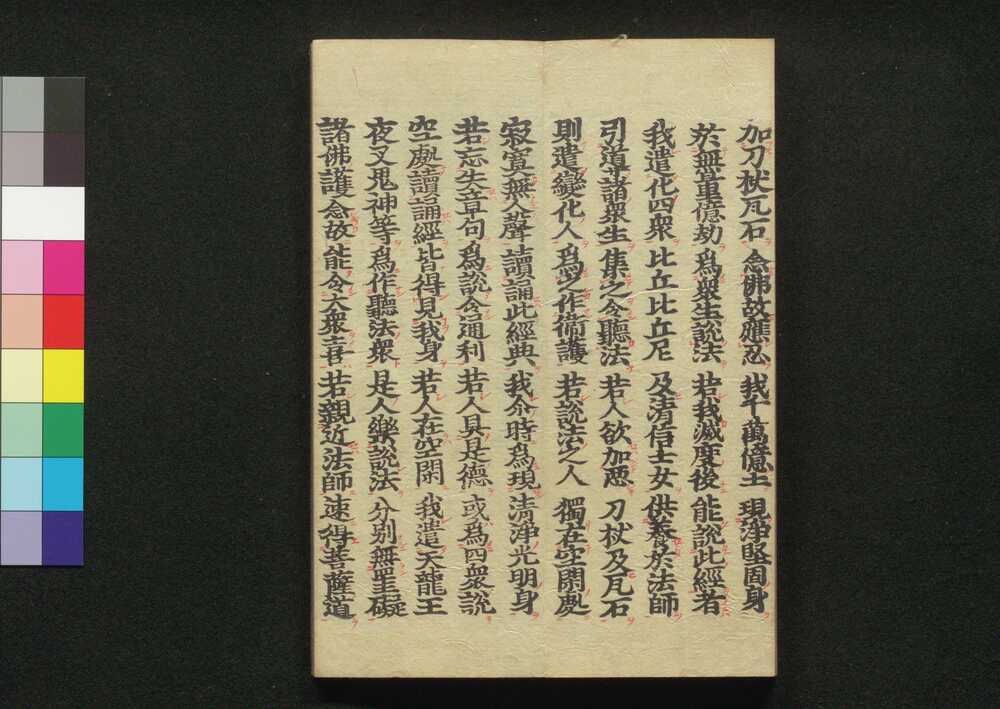 加刀杖瓦石 念佛故應忍 我千萬億土 現淨堅固身
於無量億劫 爲衆生說法 若我滅度後 能說此經者
我遣化四衆 比丘比丘尼 及清信士女 供養於法師
引導諸衆生 集之令聽法 若人欲加惡 刀杖及瓦石
則遣變化人 爲之作衞護 若說法之人 獨在空閑處
寂寞無人聲 讀誦此經典 我尒時爲現 清淨光明身
若忘失章句 爲說令通利 若人具是德 或爲四衆說
空處讀誦經 皆得見我身 若人在空閑 我遣天龍王
夜叉鬼神等 爲作聽法衆 是人樂說法 分別無罣礙
諸佛護念故 能令大衆喜 若親近法師 速得菩薩道